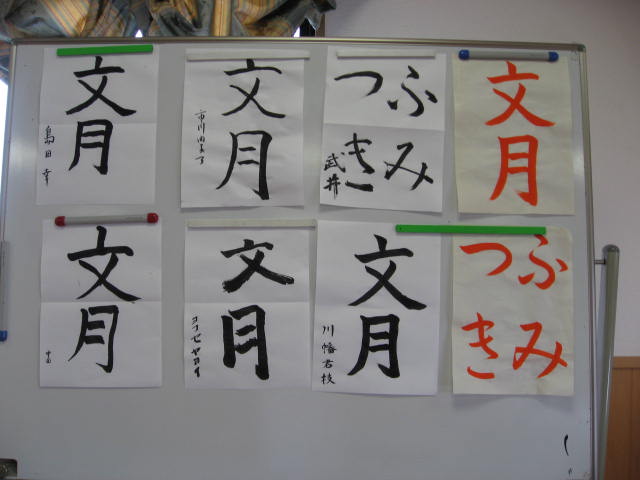 文月
島田幸
文月
ふみ
つき
武井
文月
文月
文月
ヨコゼヤカイ
文月
川幡君枝
ふみ
つき